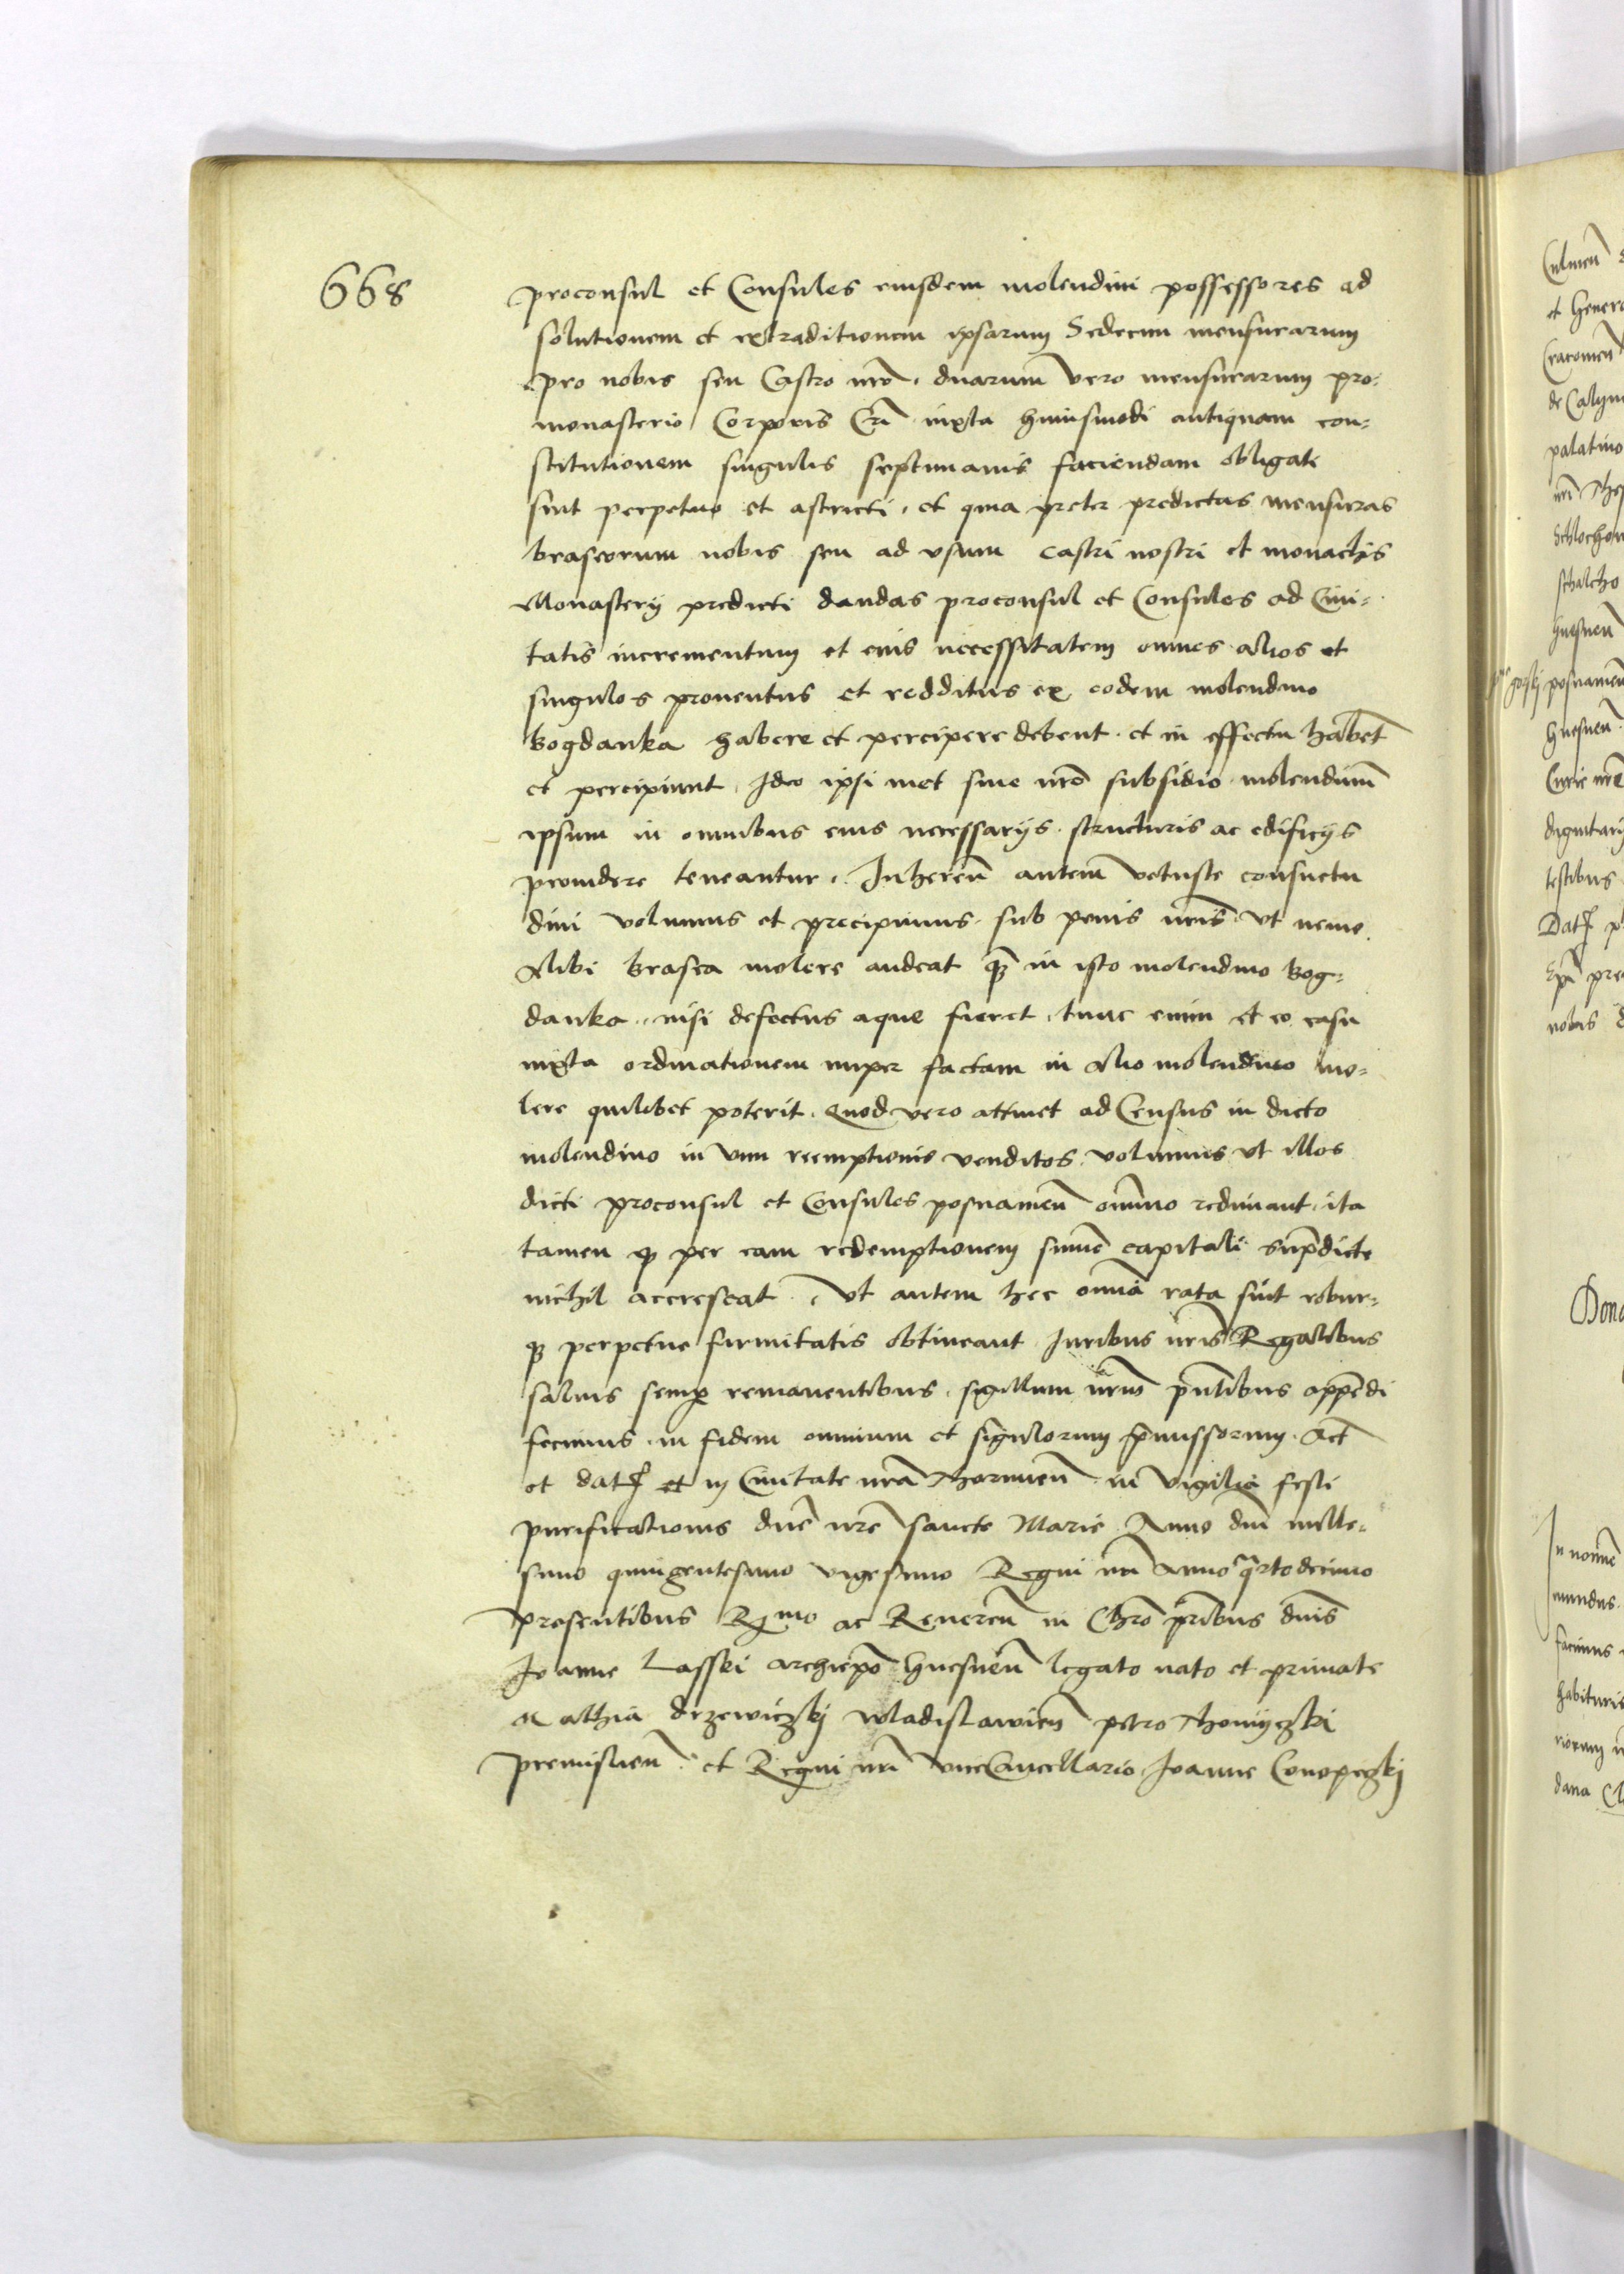 668
proconsul et Consules eiusdem molendini possessores ad
solutionem et extraditionem ipsarum Sedecim mensurarum
pro nobis seu Castro nrō. duarum vero mensurarum pro
monasterio Corporis Cri iuxta huiusmodi antiquam con=
stitutionem singulis septimanis faciendam obligati
sint perpetuo et astricti. et quia preter predictas mensuras
braseorum nobis seu ad vsum castri nostri et monachis
Monasterij predicti dandas proconsul et Consules ad Ciui=
tatis incrementum et eius necessitatem omnes alios et
singulos prouentus et redditus ex eodem molendino
Bogdanka habere et percipere debent. et in effectu habēt
et percipiunt. Ideo ipsi met sine nrō subsidio molendinū
ipsum in omnibus eius necessarijs structuris ac edificijs
prouidere teneantur. Inherēn autem vetuste consuetu
dini volumus et precipimus sub penis nrīs vt nemo
Alibi brasea molere audeat q̄ in isto molendino Bog=
danka. nisi defectus aque fieret. tunc enim et eo casu
iuxta ordinationem nuper factam in Alio molendino mo=
lere quilibet poterit. Quod vero attinet ad Census in dicto
molendino in vim reemptionis venditos volumus vt illos
dicti proconsul et Consules posnaniēn omnīo redimant. ita
tamen q per eam redemptionem sumē capitali supdicte
nichil accrescat. Vt autem hec omnīa rata sint robur=
q perpetue firmitatis obtineant Iuribus nrīs Regalibus
saluis semp remanentibus. sigillum nrūm pntībus appēdi
fecimus in fidem omnium et singulorum pmissorum. Act
et dat et in Ciuitate nrā Thorunēn in vigilia festi
purificationis dnē nrē sancte Marie Anno dnī mille=
simo quingentesimo vigesimo Regni nrī Anno qrtodecimo
presentibus Rmo ac Reuerēn in Chrō prībus dnīs
Joanne Lasski archiepō Gnesnēn legato nato et primate
Mathia drzewiczkj wladislawiēn petro Thomyczki
premisliēn. et Regni nrī viceCancellario Joanne Conopyczkj